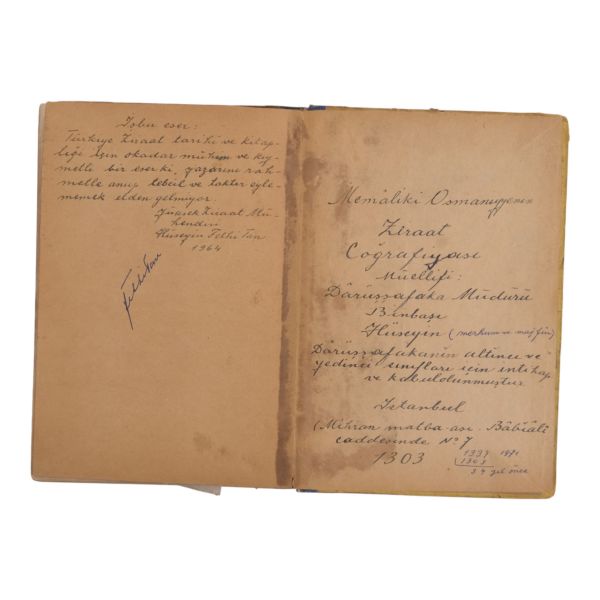 İşbu eser:
Türkiye Ziraat tarihi ve kitap-
lığı için okadar mühim ve kıy-
metli bir eserki, yazarını rah-
metle anup tebcil ve takdir eyle-
memek elden gelmiyor.
Yüksek Ziraat Mü-
hendisi
Hüseyin Fethi Tan
1964
Memaliki Osmaniyyenin
Ziraat
Coğrafiyası
Müellifi:
Dârüşşafaka Müdürü
Binbaşı
Hüseyin (merhum ve mağfûr)
Dârüşşafakanın altıncı ve
yedinci sınıfları için intihap
ve kabul olunmuştur
İstanbul
(Mihran matbaası. Bâbıâli
caddesinde No 7
1303
1339
1303
34 yıl önce